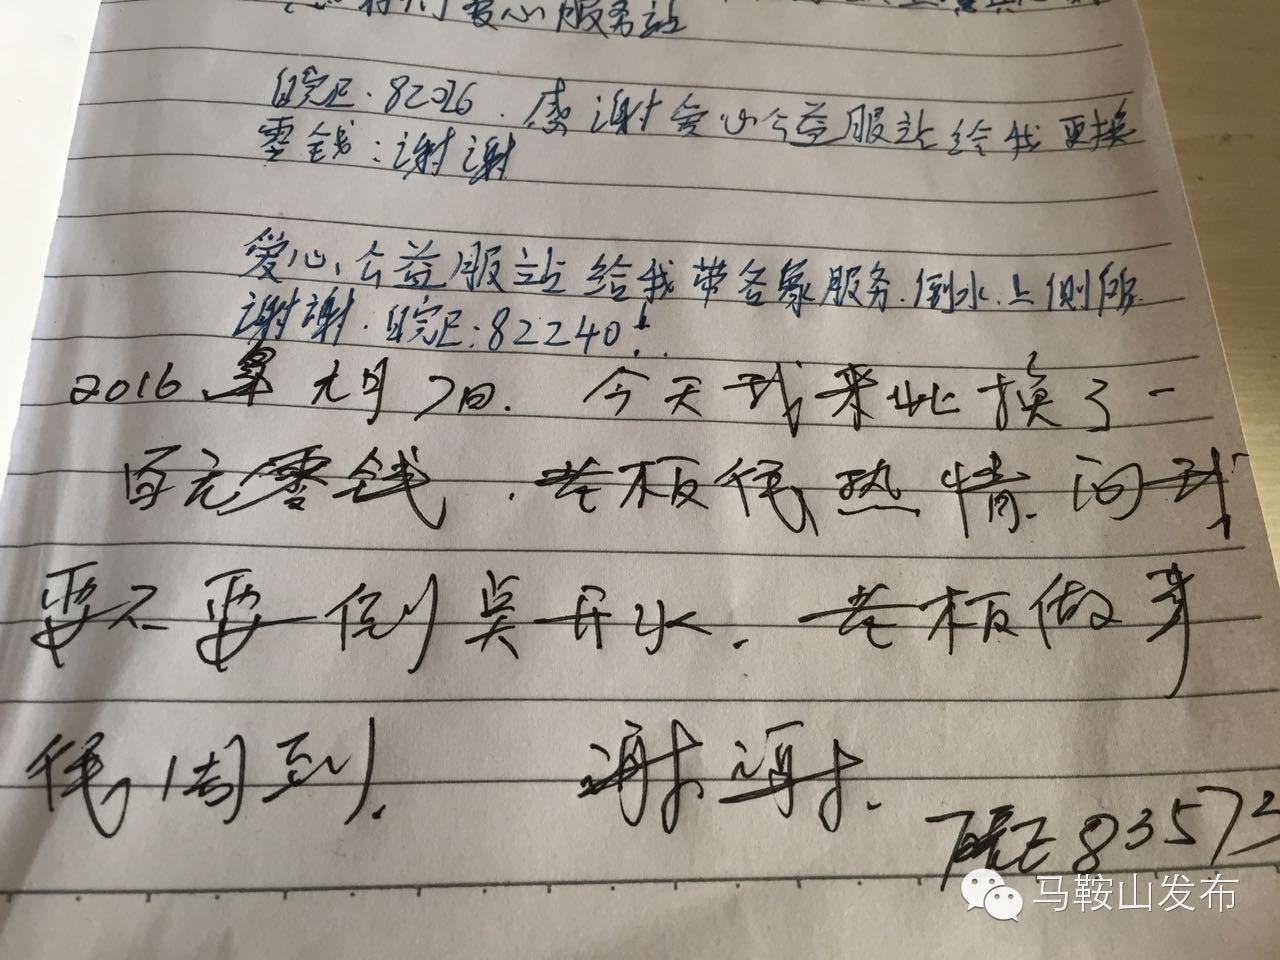 爱心服务站
皖E·82026.感谢爱心公益服站给我更换
零钱:谢谢
爱心、公益服站给我带各象服务.倒水.上侧所.
谢谢.皖E:82240!
2016年元月7日.今天我来此换了一
百元零钱.老板很热情.问我
要不要倒点开水.老板做事
很周到.谢谢.
皖E83573
马鞍山发布